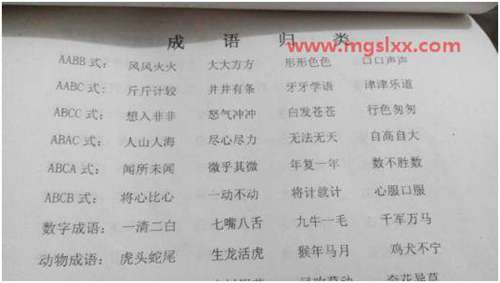 成语归类
www.mgslxx.com
AABB式： 风风火火 大大方方 形形色色 口口声声
AABC式： 斤斤计较 井井有条 牙牙学语 津津乐道
ABCC式： 想入非非 怒气冲冲 白发苍苍 行色匆匆
ABAC式： 人山人海 尽心尽力 无法无天 自高自大
ABCA式： 闻所未闻 微乎其微 年复一年 数不胜数
ABCB式： 将心比心 一动不动 将计就计 心服口服
数字成语： 一清二白 七嘴八舌 九牛一毛 千军万马
动物成语： 虎头蛇尾 生龙活虎 猴年马月 鸡犬不宁
奇花异草